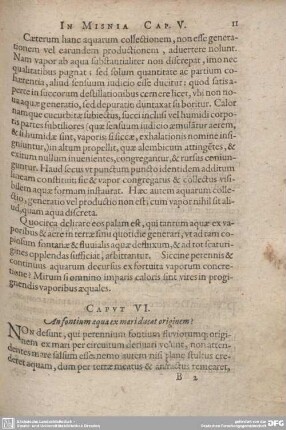 IN MISNIA CAP. V. 11
Cæterum hanc aquarum collectionem, non esse genera-
tionem vel earundem productionem, aduertere nolunt.
Nam vapor ab aqua substantialiter non discrepat, imo nec
qualitatibus pugnat: sed solum quantitate ac partium co-
hærentia, aliud sensuum iudicio esse ducitur: quod satis a-
perte in succorum destillationibus cernere licet, vbi non no-
ua aquæ generatio, sed depuratio duntaxat sit
namque cucurbitæ subiectus, succi inclusi vel humidi corpo-
ris partes subtiliores (quæ sensuum iudicio æmulātur aerem,
& si humidæ sint, vaporis: si siccæ, exhalationis nomine insi-
gniuntur) in altum propellit, quæ alembicum attingētes, &
exitum nullum inuenientes, congregantur, & rursus coniun-
guntur. Haud secus vt punctum puncto identidem additum
lineam constituit: sic & vapor congregatus & collectus vi-
sibilem aquæ formam instaurat. Hæc autem aquarum colle-
ctio, generatio vel productio non est: cum vapor nihil sit ali-
ud, quam aqua discreta.
Quocirca delirare eos palam est, qui tantum aquæ ex va-
poribus & aere in terræ sinu quotidie generari, vt ad tam co-
piosum fontanæ & fluuialis aquæ defluxum, & ad tot scaturi-
gines opplendas sufficiat, arbitrantur. Siccine perennis &
continuus aquarum decursus ex fortuita vaporum concre-
tione? Mirum si omnino imparis caloris sint vires in progi-
gnendis vaporibus æquales.
CAPVT VI.
An fontium aqua ex mari ducat originem?
NON desunt, qui perennium fontium fluviorumq́; origi-
nem ex mari per circuitum deriuari velint, non atten-
dentes mare salsum esse: nemo autem nisi plane stultus cre-
deret, aquam, dum per terræ meatus & anfractus remearet,
B 2